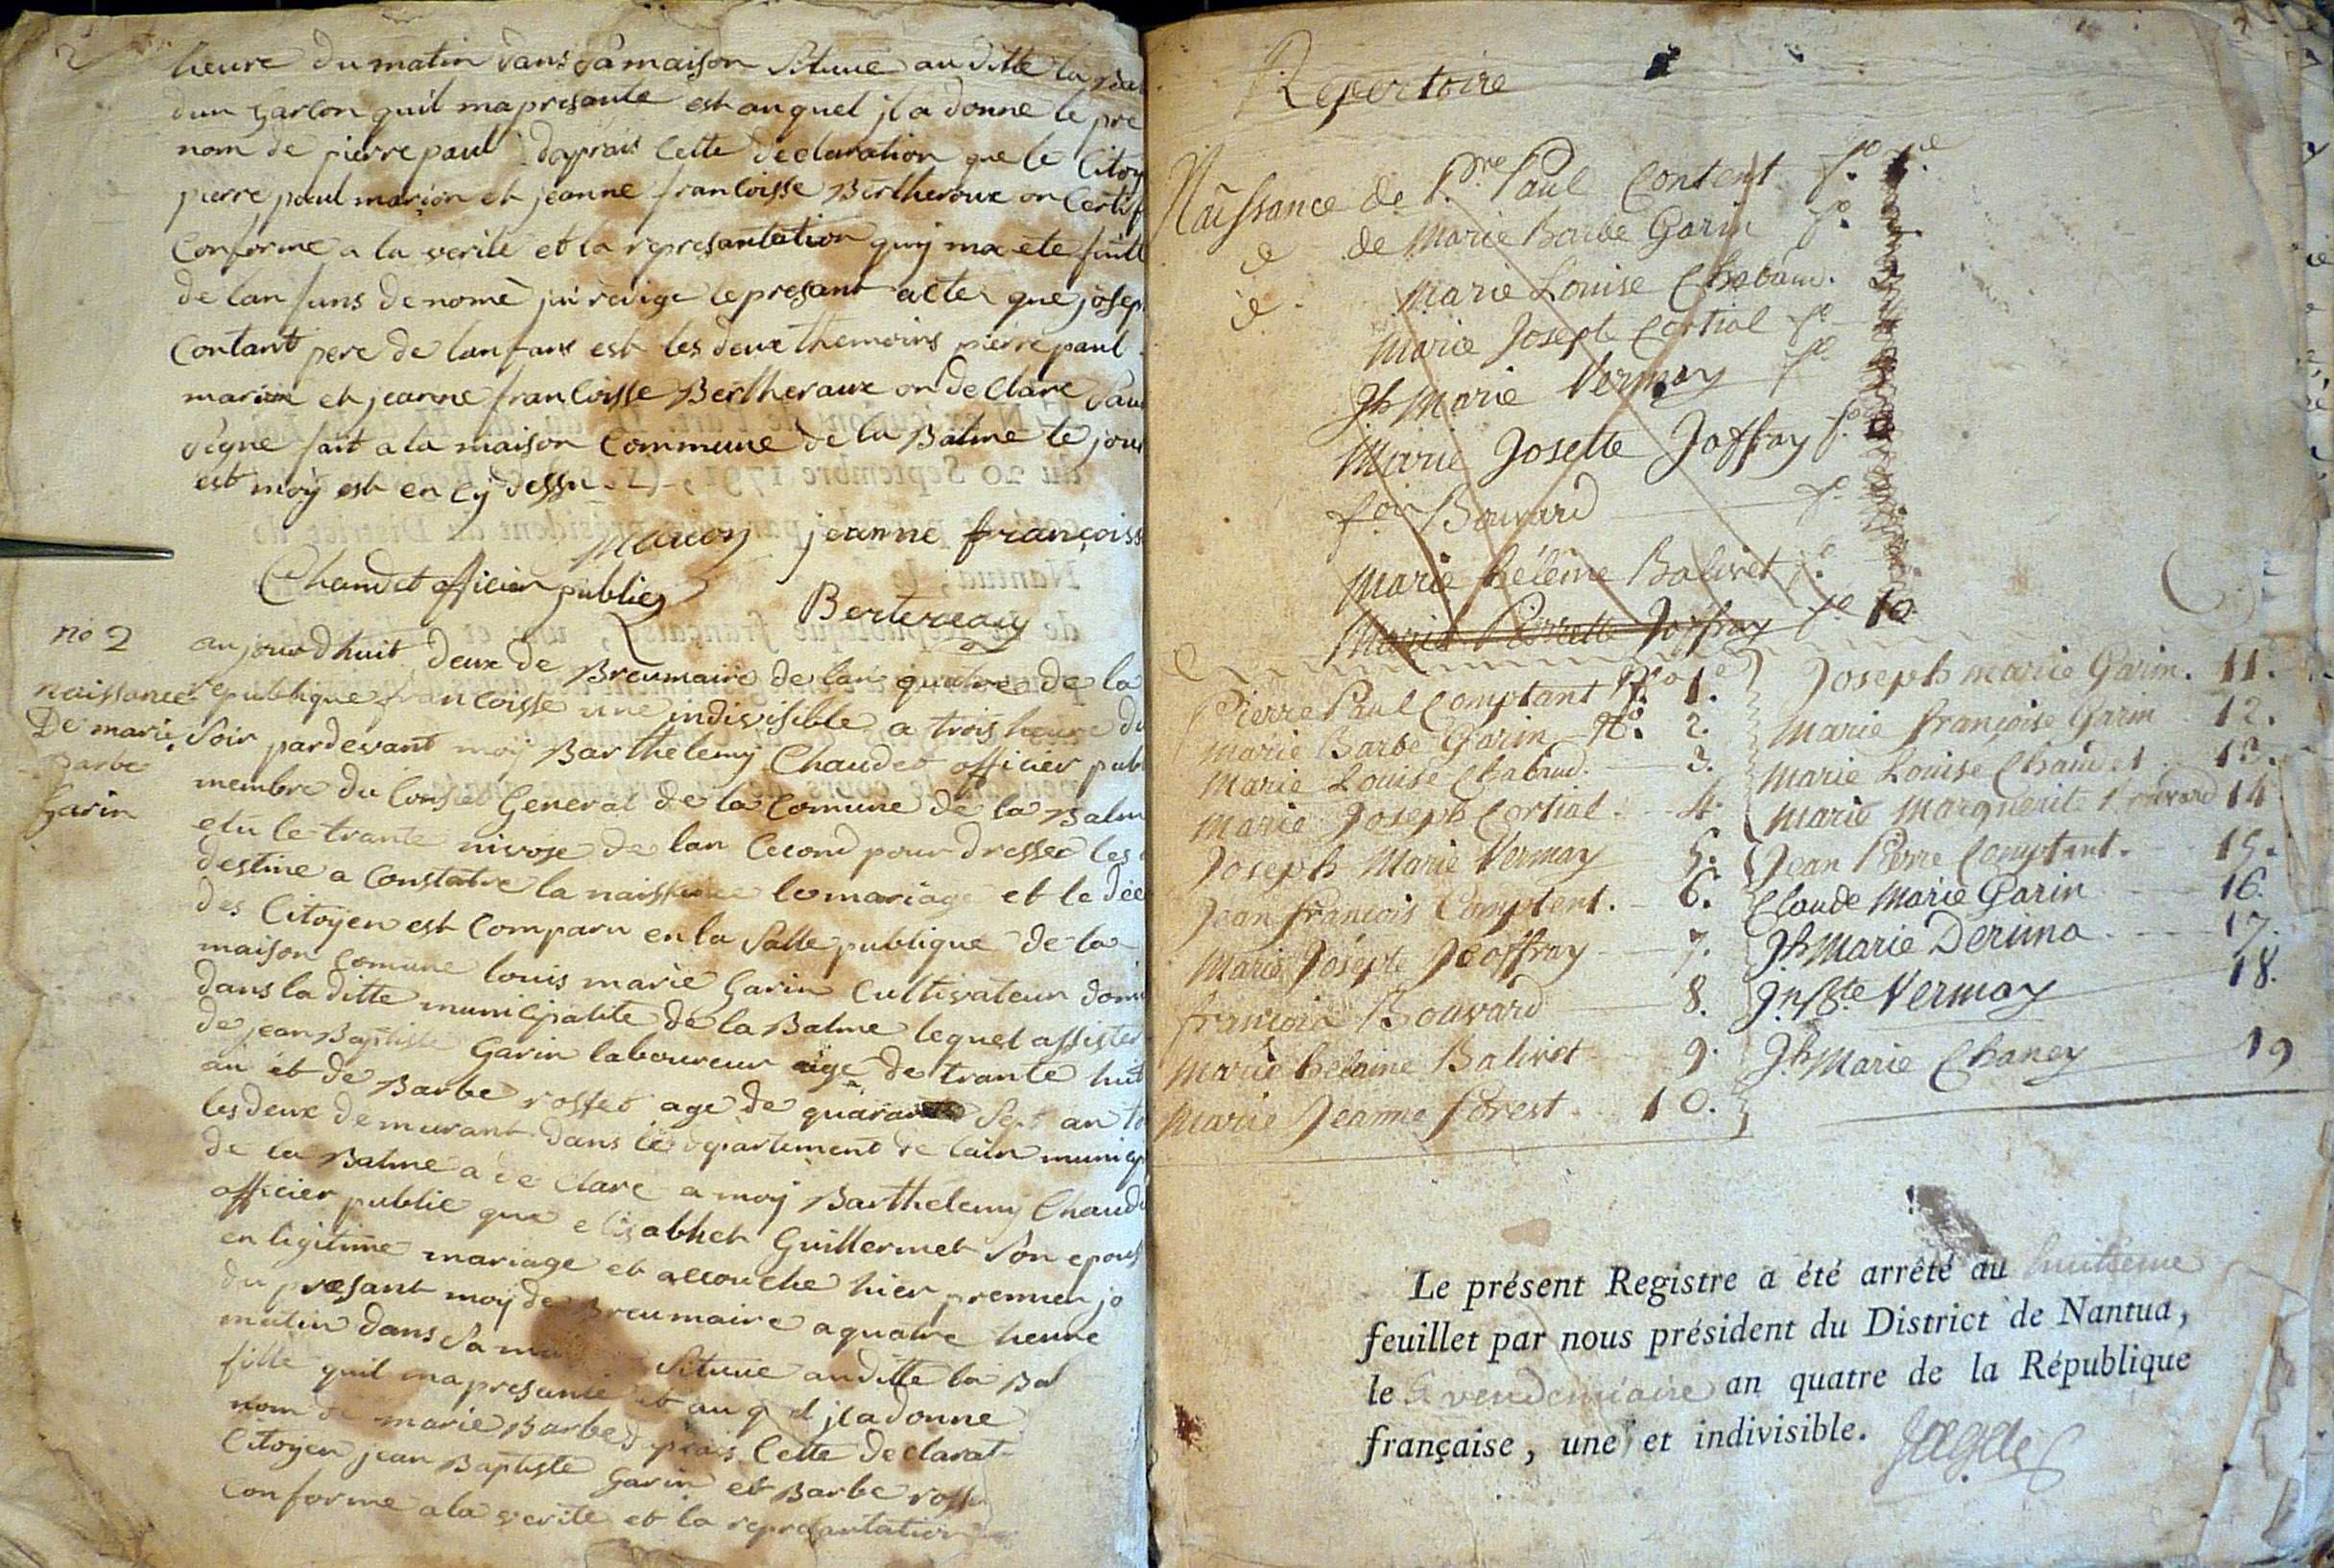 heure du matin dans sa maison Situue au ditte la Bal
dun garcon quil ma presante est au quel jl a donne le pre
nom de pierre paul dapräis Cette declaration que le Citoy
pierre paul marion et jeanne francoisse Bertheroux on Certif
Conforme a la verite et la represantation quy ma ete faitt
de lan fans denomè jai redige le presant acte que josep
Contant pere de lan fans est les deux themoins pierre paul
marion et jeanne francoisse Bertheraux on de Clare Sau
signe fait a la maison Commune de la Balme le jour
est moÿ est en Cÿ dessu
Marion jeanne françoiss
Chaudet officier publicq
Bertereau
no 2
naissance
De marie
Barbe
Garin
aujourdhuit deux de Breumaire de lan quatre de la
republique francoisse une indivisible a trois heure du
Soir pardevant moÿ Barthelemÿ Chaudet officier pub
membre du Conseil General de la Comune de la Balm
elu le trante nivose de lan Cecond pour dresser les
destine a Constatre la naissance le mariage et le dée
des Citoÿen est Comparu en la Salle publique de la
maison Comune louis marie Garin Cultivateur domi
dans la ditte municipalite de la Balme lequel assister
de jean Baptiste Garin laboureur aige de trante huit
an et de Barbe rosset age de quarante Sept an to
les deux demurant dans le departement de lain municip
de la Balme a de Clare a moÿ Barthelemy Chaude
officier public que elisabhet Guillermet Son epous
en ligitime mariage et accouche hier premier jo
du presant moÿ de Breumaire a quatre heure
matin dans Sa Situue au ditte la Bal
fille quil ma presante et au jl a donne
nom de marie Barbe Cette declarat
Citoÿen jean Baptiste Garin et Barbe rosse
Conforme a la verite et la represantation
Repertoire
Naissance de Pre Paul Content fo 1e
de de Marie Barbe Garin fo
de Marie Louise Chabaud.
Marie Joseph Cortial fo
Jh Marie Vermay fo
Marie Josette Joffray fo
fois Bouvard fo
Marie héléine Balivet fo
Marie Pierrette Joffray fo 10
Pierre Paul Comptant No 1e.
Marie Barbe Garin No. 2.
Marie Louise Chabaud. 3.
Marie Joseph Cortial. 4.
Joseph Marie Vermay 5.
Jean françois Comptent. 6.
Marie Joséph Jeoffray 7.
françois Bouvard 8.
Marie helaine Balivet 9.
Marie Jeanne forest. 10.
Joseph marie Garin. 11.
Marie françoise Garin 12.
Marie Louise Chaudet 13.
Marie Marguerite Bouvard 14
Jean Pierre Comptant. 15.
Claude Marie Garin 16.
Jh Marie Derima 17.
Jn Bte Vermay 18.
Jh Marie Chaney 19
Le présent Registre a été arrêté au huitieme
feuillet par nous président du District de Nantua,
le vendemiaire an quatre de la République
française, une et indivisible.